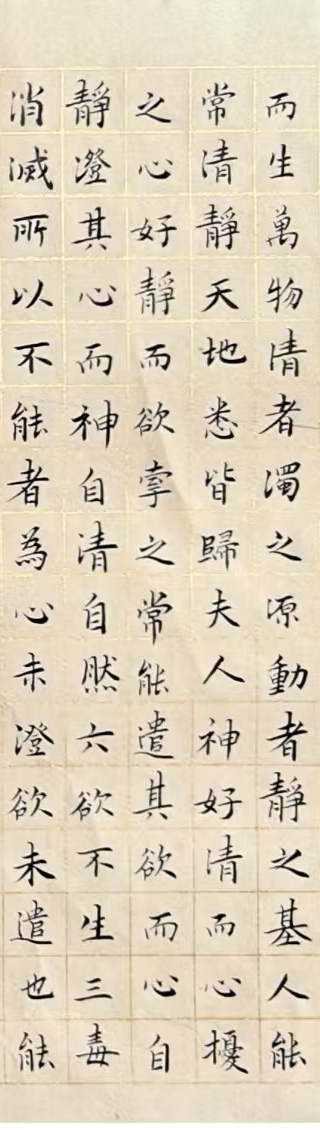 而生萬物清者濁之源動者靜之基人能
常清靜天地悉皆歸夫人神好清而心擾
之心好靜而欲牽之常能遣其欲而心自
靜澄其心而神自清自然六欲不生三毒
消滅所以不能者為心未澄欲未遣也能